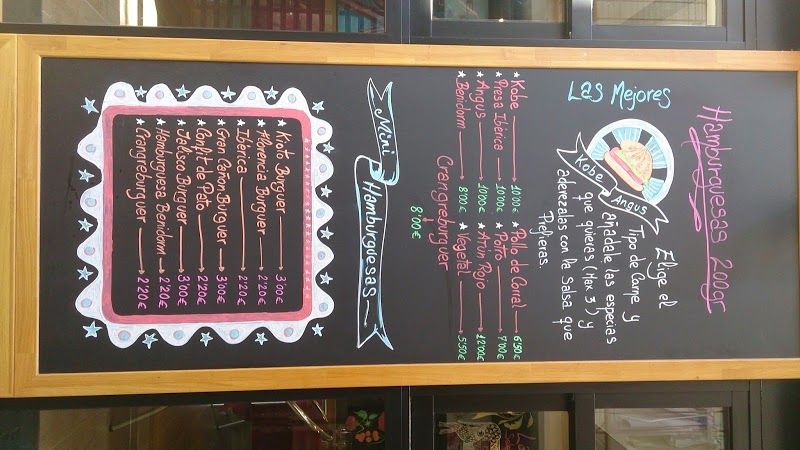 Hamburguesas 200gr
Las Mejores
Kobe
Angus
Elige el
Tipo de Carne y
añádale las especias
que quieras (Max. 3) y
aderezalas con la Salsa que
Prefieras.
★ Kobe → 10'00€
★ Presa Ibérica → 10'00€
★ Angus → 10'00€
★ Benidorm → 8'00€
★ Pollo de Corral → 6'50€
★ Potro → 7'00€
★ Atún Rojo → 12'00€
★ Vegetal → 5'50€
Crangreburguer
8'00€
Mini Hamburguesas
★ Kioto Burguer → 3'00€
★ Florencia Burguer → 2'20€
★ Ibérica → 2'20€
★ Gran Cañon Burguer → 3'00€
★ Confit de Pato → 2'20€
★ Jalisco Burguer → 3'00€
★ Hamburguesa Benidorm → 2'20€
★ Crangreburguer → 2'20€